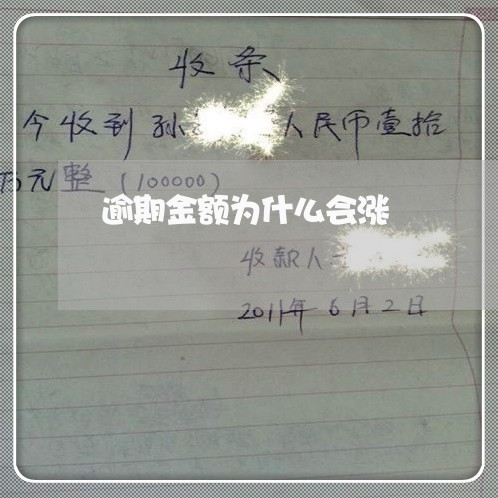 收条
今收到孙 人民币壹拾
万元整（100000）
逾期金额为什么会涨
收款人
2011年6月2日